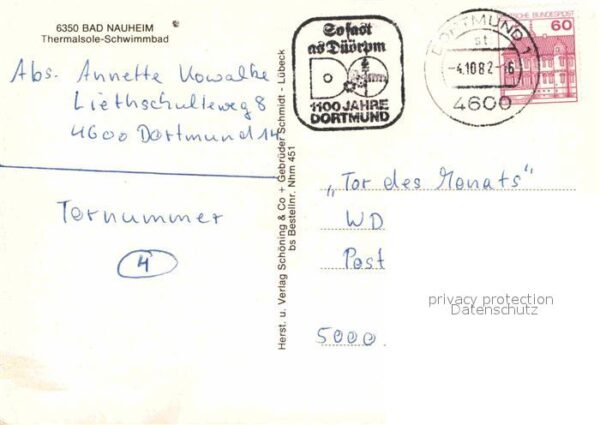 6350 BAD NAUHEIM
Thermalsole-Schwimmbad
Abs. Annette Kowalke
Liethschulteweg 8
4600 Dortmund 14
Tornummer
4
Herst. u. Verlag Schöning & Co + Gebrüder Schmidt - Lübeck
bs Bestellnr. Nhm 451
So fast
as Düörpm
DO
1100 JAHRE
DORTMUND
DORTMUND 1
st
-4.10.82.-16
4600
DEUTSCHE BUNDESPOST
60
„Tor des Monats"
WD
Post
5000.
privacy protection
Datenschutz